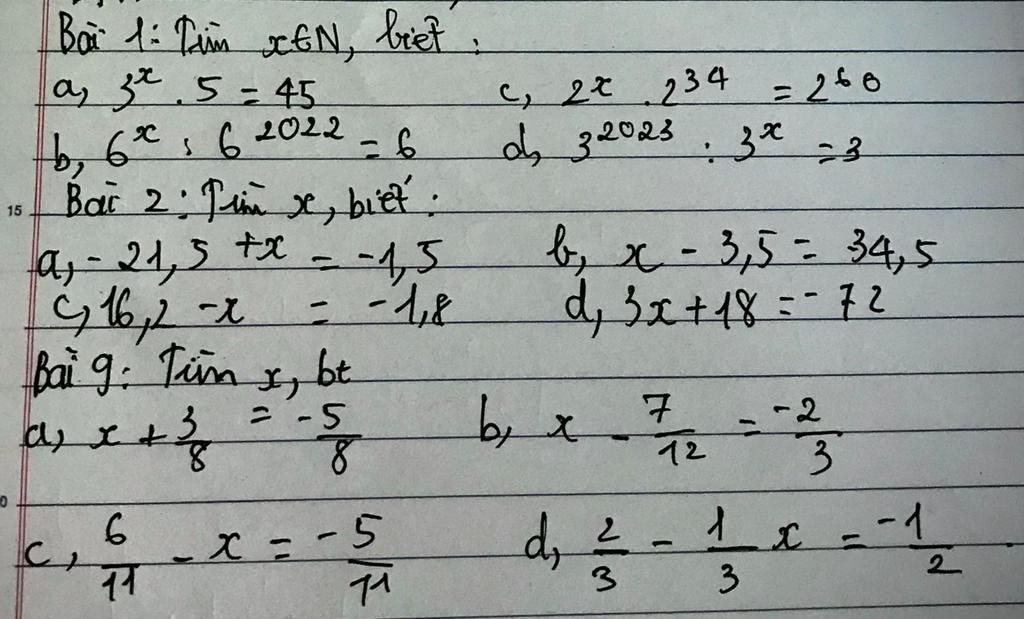 Bài 1: Tìm x∈N, biết:
a, 3^x . 5 = 45 c, 2^x . 2^34 = 2^60
b, 6^x : 6^2022 = 6 d, 3^2023 : 3^x = 3
15 Bài 2: Tìm x, biết:
a, -21,5 + x = -1,5 b, x - 3,5 = 34,5
c, 16,2 - x = -1,8 d, 3x + 18 = -72
Bài 9: Tìm x, bt
a, x + 3/8 = -5/8 b, x - 7/12 = -2/3
c, 6/11 - x = -5/11 d, 2/3 - 1/3 x = -1/2